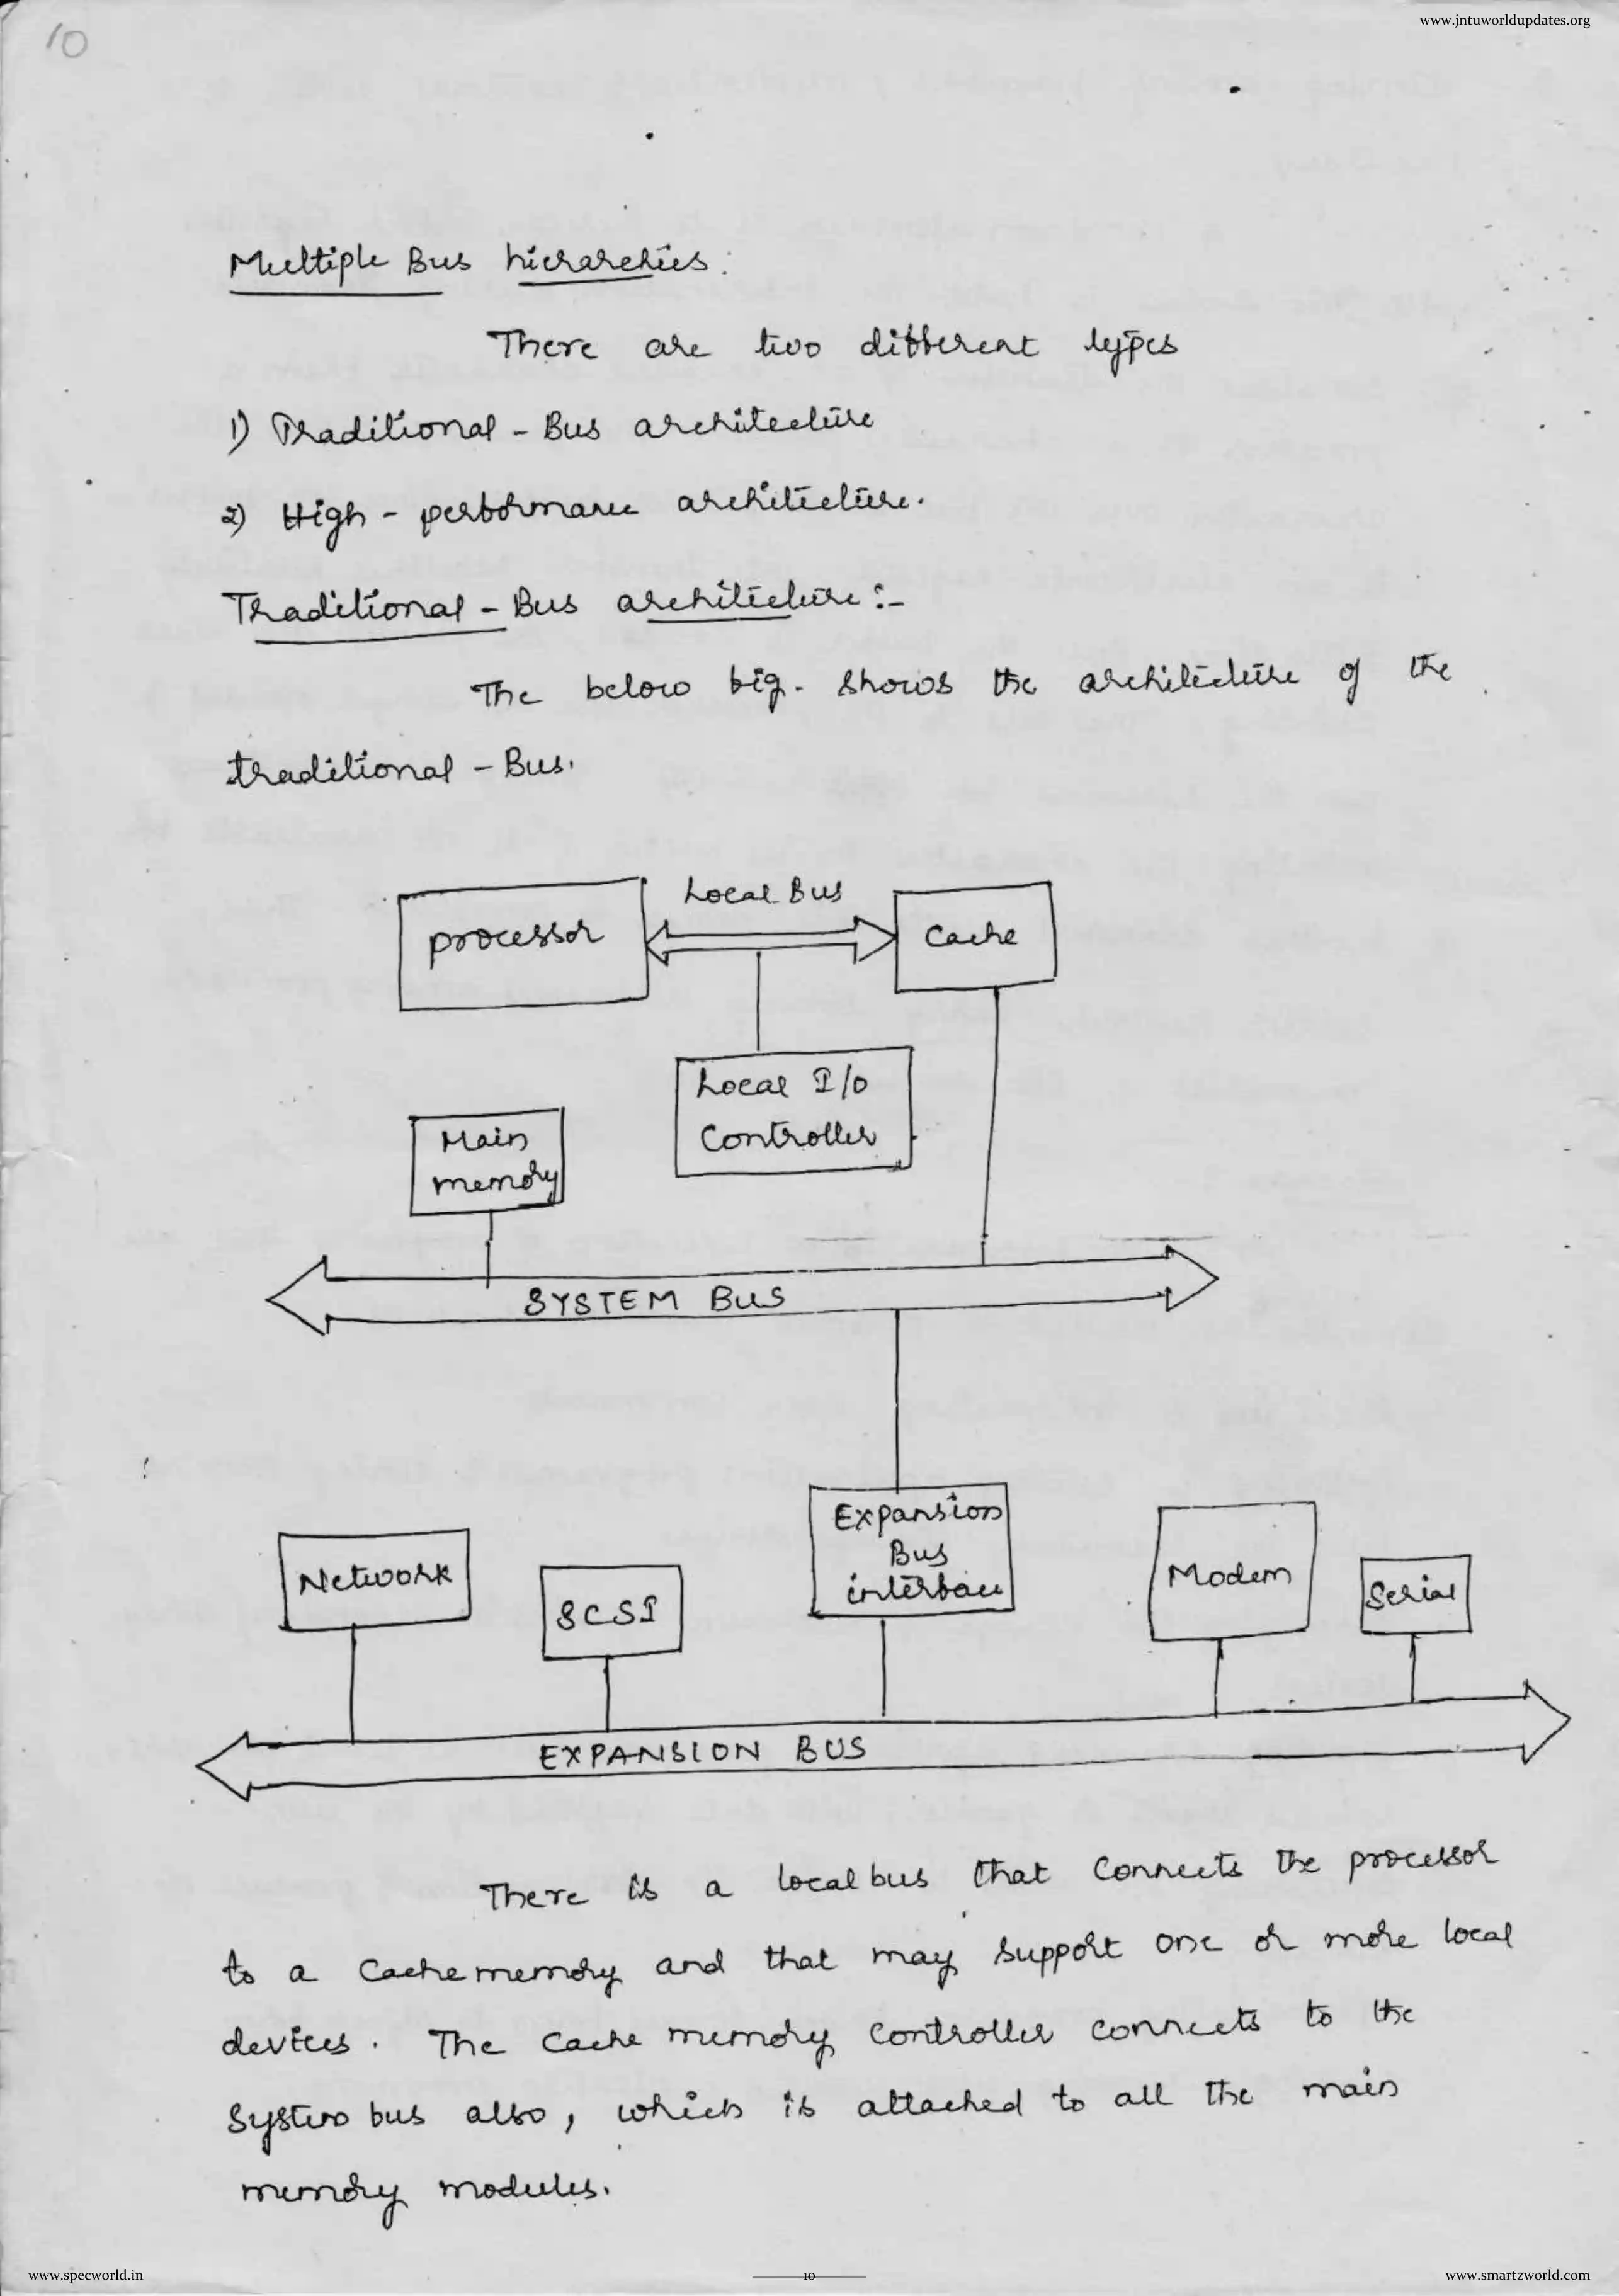 www.jntuworldupdates.org
10
Multiple Bus hierarchies:
There are two different types
1) Traditional - Bus architecture
2) High - performance architecture.
Traditional - Bus architecture :-
The below fig. shows the architecture of the
traditional - Bus.
Local Bus
processor
Cache
Local I/O
Controller
Main
memory
SYSTEM BUS
Expansion
Bus
interface
Network
SCSI
Modem
Serial
EXPANSION BUS
There is a local bus that connects the processor
to a Cache memory and that may support one or more local
devices. The cache memory controller connects to the
System bus also, which is attached to all the main
memory modules.
www.specworld.in
10
www.smartzworld.com